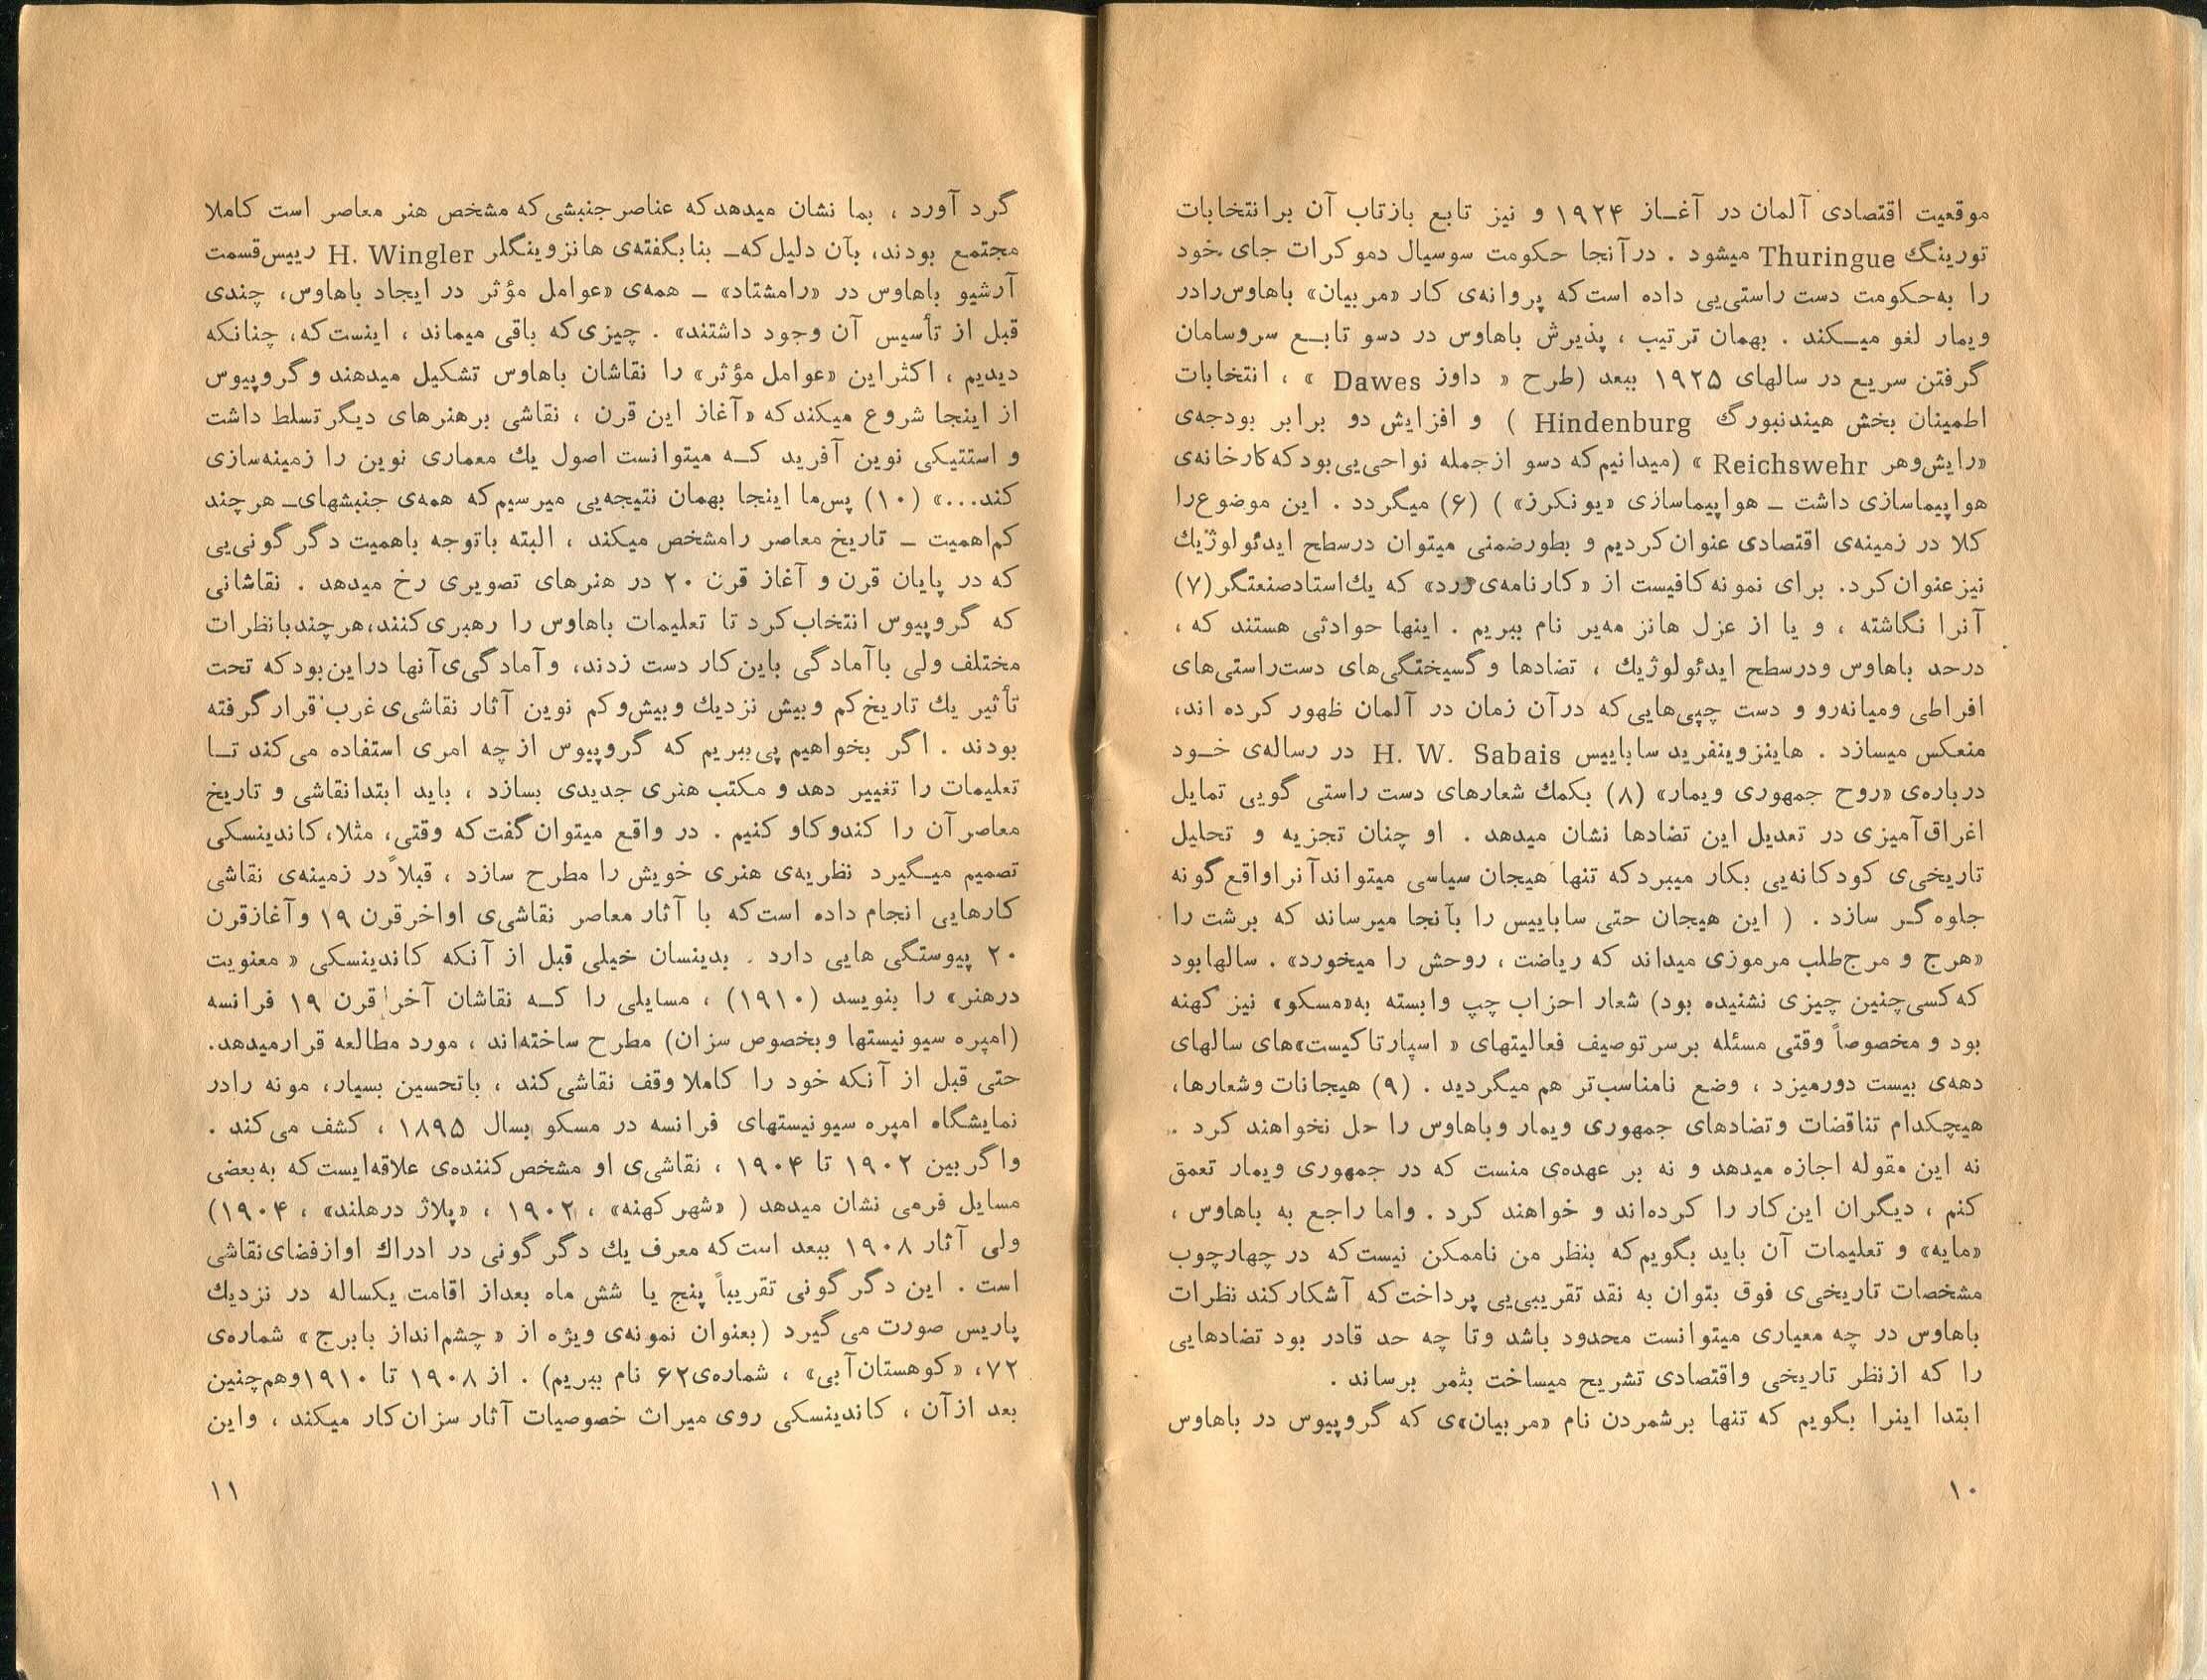 موقعیت اقتصادی آلمان در آغـاز ۱۹۲۴ و نیز تابع بازتاب آن برانتخابات
تورینگ Thuringue میشود . درآنجا حکومت سوسیال دموکرات جای خود
را به‌حکومت دست راستی‌یی داده است‌که پروانه‌ی کار «مربیان» باهاوس‌رادر
ویمار لغو میـکند . بهمان ترتیب ، پذیرش باهاوس در دسو تابـع سروسامان
گرفتن سریع در سالهای ۱۹۲۵ ببعد (طرح « داوز Dawes » ، انتخابات
اطمینان بخش هیندنبورگ Hindenburg ) و افزایش دو برابر بودجه‌ی
«رایش‌وهر Reichswehr » (میدانیم‌که دسو ازجمله نواحی‌یی‌بودکه‌کارخانه‌ی
هواپیماسازی داشت ـ هواپیماسازی «یونکرز» ) (۶) میگردد . این موضوع‌را
کلا در زمینه‌ی اقتصادی عنوان‌کردیم و بطورضمنی میتوان درسطح ایدئولوژیك
نیزعنوان‌کرد. برای نمونه‌کافیست از «کارنامه‌ی زرد» که یك‌استادصنعتگر(۷)
آنرا نگاشته ، و یا از عزل هانز مه‌یر نام ببریم . اینها حوادثی هستند که ،
درحد باهاوس ودرسطح ایدئولوژیك ، تضادها و گسیختگی‌های دست‌راستی‌های
افراطی ومیانه‌رو و دست چپی‌هایی‌که درآن زمان در آلمان ظهور کرده اند،
منعکس میسازد . هاینزوینفرید ساباییس H. W. Sabais در رساله‌ی خـود
درباره‌ی «روح جمهوری ویمار» (۸) بکمك شعارهای دست راستی گویی تمایل
اغراق‌آمیزی در تعدیل این تضادها نشان میدهد . او چنان تجزیه و تحلیل
تاریخی‌ی کودکانه‌یی بکار میبردکه تنها هیجان سیاسی میتواندآنراواقع گونه
جلوه‌گـر سازد . ( این هیجان حتی ساباییس را بآنجا میرساند که برشت را
«هرج و مرج‌طلب مرموزی میداند که ریاضت ، روحش را میخورد» . سالهابود
که‌کسی‌چنین چیزی نشنیده بود) شعار احزاب چپ وابسته به«مسکو» نیز کهنه
بود و مخصوصاً وقتی مسئله برسرتوصیف فعالیتهای « اسپارتاکیست»های سالهای
دهه‌ی بیست دورمیزد ، وضع نامناسب‌تر هم میگردید . (۹) هیجانات وشعارها،
هیچکدام تناقضات وتضادهای جمهوری ویمار وباهاوس را حل نخواهند کرد .
نه این مقوله اجازه میدهد و نه بر عهده‌ی منست که در جمهوری ویمار تعمق
کنم ، دیگران این‌کار را کرده‌اند و خواهند کرد . واما راجع به باهاوس ،
«مایه» و تعلیمات آن باید بگویم‌که بنظر من ناممکن نیست‌که در چهارچوب
مشخصات تاریخی‌ی فوق بتوان به نقد تقریبی‌یی پرداخت‌که آشکارکند نظرات
باهاوس در چه معیاری میتوانست محدود باشد وتا چه حد قادر بود تضادهایی
را که ازنظر تاریخی واقتصادی تشریح میساخت بثمر برساند .
ابتدا اینرا بگویم که تنها برشمردن نام «مربیان»ی که گروپیوس در باهاوس
۱۰
گرد آورد ، بما نشان میدهدکه عناصرجنبشی‌که مشخص هنر معاصر است کاملا
مجتمع بودند، بآن دلیل‌که‌ـ بنابگفته‌ی هانزوینگلر H. Wingler رییس‌قسمت
آرشیو باهاوس در «رامشتاد» ـ همه‌ی «عوامل مؤثر در ایجاد باهاوس، چندی
قبل از تأسیس آن وجود داشتند» . چیزی‌که باقی میماند ، اینست‌که، چنانکه
دیدیم ، اکثراین «عوامل مؤثر» را نقاشان باهاوس تشکیل میدهند وگروپیوس
از اینجا شروع میکندکه «آغاز این قرن ، نقاشی برهنرهای دیگرتسلط داشت
و استتیکی نوین آفرید کـه میتوانست اصول یك معماری نوین را زمینه‌سازی
کند...» (۱۰) پس‌ما اینجا بهمان نتیجه‌یی میرسیم‌که همه‌ی جنبشهای‌ـ هرچند
کم‌اهمیت ـ تاریخ معاصر رامشخص میکند ، البته باتوجه باهمیت دگرگونی‌یی
که در پایان قرن و آغاز قرن ۲۰ در هنرهای تصویری رخ میدهد . نقاشانی
که گروپیوس انتخاب‌کرد تا تعلیمات باهاوس را رهبری‌کنند،هرچندبانظرات
مختلف ولی باآمادگی باین‌کار دست زدند، وآمادگی‌ی‌آنها دراین‌بودکه تحت
تأثیر یك تاریخ‌کم وبیش نزدیك وبیش‌وکم نوین آثار نقاشی‌ی غرب قرارگرفته
بودند . اگر بخواهیم پی‌ببریم که گروپیوس ازچه امری استفاده می‌کند تـا
تعلیمات را تغییر دهد و مکتب هنری جدیدی بسازد ، باید ابتدانقاشی و تاریخ
معاصرآن را کندوکاو کنیم . در واقع میتوان‌گفت‌که وقتی، مثلا،کاندینسکی
تصمیم میـگیرد نظریه‌ی هنری خویش را مطرح سازد ، قبلاً در زمینه‌ی نقاشی
کارهایی انجام داده است‌که با آثار معاصر نقاشی‌ی اواخرقرن ۱۹ وآغازقرن
۲۰ پیوستگی هایی دارد . بدینسان خیلی قبل از آنکه کاندینسکی « معنویت
درهنر» را بنویسد (۱۹۱۰) ، مسایلی را کـه نقاشان آخر قرن ۱۹ فرانسه
(امپره سیونیستها وبخصوص سزان) مطرح ساخته‌اند ، مورد مطالعه قرارمیدهد.
حتی قبل از آنکه خود را کاملا وقف نقاشی‌کند ، باتحسین بسیار، مونه رادر
نمایشگاه امپره سیونیستهای فرانسه در مسکو بسال ۱۸۹۵ ، کشف می‌کند .
واگربین ۱۹۰۲ تا ۱۹۰۴ ، نقاشی‌ی او مشخص‌کننده‌ی علاقه‌ایست‌که به‌بعضی
مسایل فرمی نشان میدهد ( «شهرکهنه» ، ۱۹۰۲ ، «پلاژ درهلند» ، ۱۹۰۴)
ولی آثار ۱۹۰۸ ببعد است‌که معرف یك دگرگونی در ادراك اوازفضای‌نقاشی
است . این دگرگونی تقریباً پنج یا شش ماه بعداز اقامت یکساله در نزدیك
پاریس صورت می‌گیرد (بعنوان نمونه‌ی ویژه از « چشم‌انداز بابرج » شماره‌ی
۷۲، «کوهستان‌آبی» ، شماره‌ی۶۲ نام ببریم) . از ۱۹۰۸ تا ۱۹۱۰وهم‌چنین
بعد ازآن ، کاندینسکی روی میراث خصوصیات آثار سزان‌کار میکند ، واین
۱۱